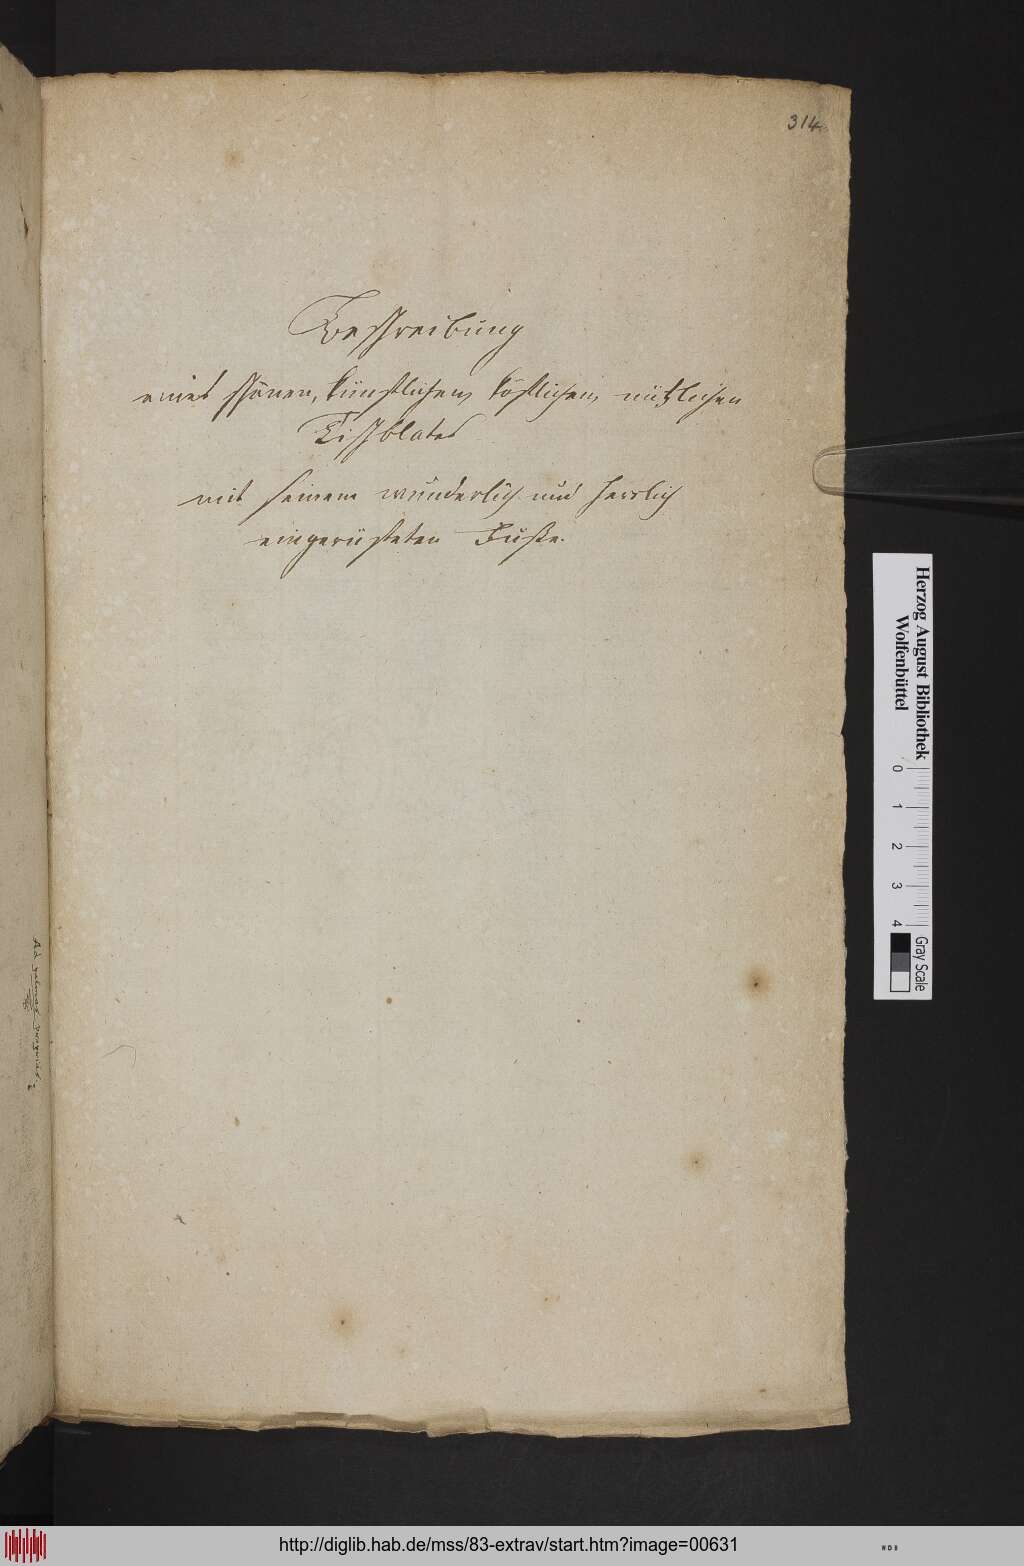 314.
Beschreibung
eines schönen, künstlichen, köstlichen, nützlichen
Tischblates
mit seinem wunderlich und herrlich
eingerüsteten Fuße.
Herzog August Bibliothek
Wolfenbüttel
0 1 2 3 4
Gray Scale
Ad
http://diglib.hab.de/mss/83-extrav/start.htm?image=00631